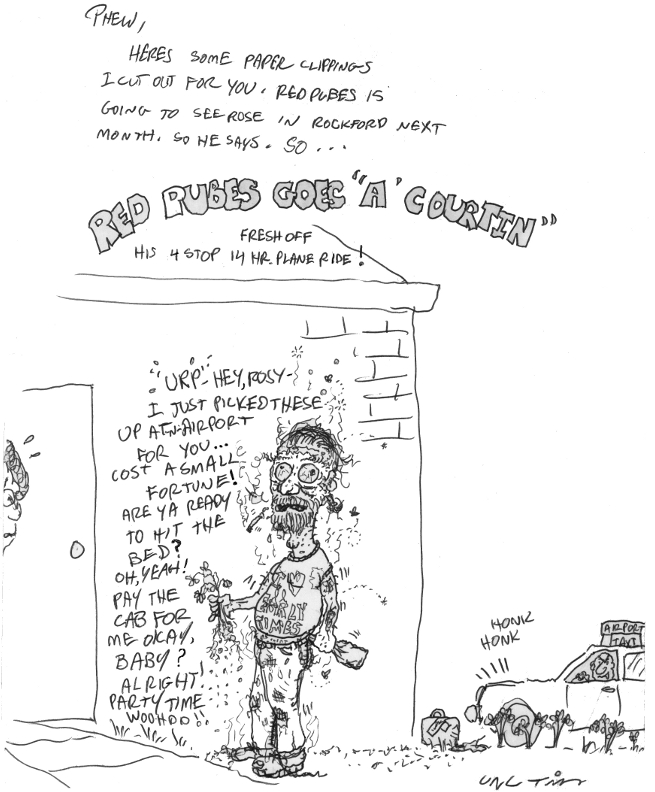 PHEW,
HERES SOME PAPER CLIPPINGS
I CUT OUT FOR YOU. RED PUBES IS
GOING TO SEE ROSE IN ROCKFORD NEXT
MONTH. SO HE SAYS. SO...
RED PUBES GOES "A' COURTIN"
FRESH OFF
HIS 4 STOP 14 HR. PLANE RIDE!
"URP"- HEY, ROSY-
I JUST PICKED THESE
UP AT-N-AIRPORT
FOR YOU...
COST A SMALL
FORTUNE!
ARE YA READY
TO HIT THE
BED?
OH, YEAH!
PAY THE
CAB FOR
ME OKAY,
BABY?
ALRIGHT!
PARTY TIME
WOOHOO!!
I ♥
EARLY
TIMES
HONK
HONK
AIRPORT
TAXI
UNC TIM